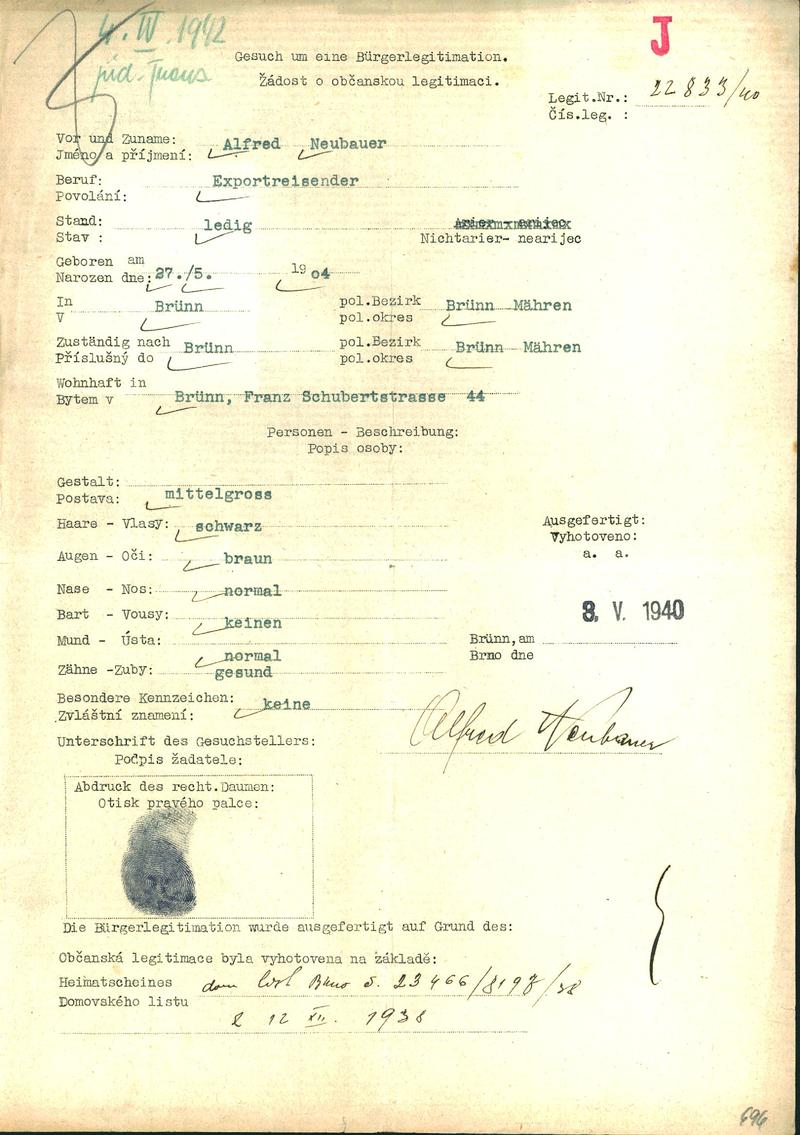 4. IV. 1942
jüd. Trans
J
Gesuch um eine Bürgerlegitimation.
Žádost o občanskou legitimaci.
Legit.Nr.: 22833/40
Čís.leg. :
Vor und Zuname: Alfred Neubauer
Jméno a příjmení:
Beruf: Exportreisender
Povolání:
Stand: ledig
Stav :
Nichtarier- nearijec
Geboren am
Narozen dne: 27./5. 1904
In Brünn pol.Bezirk Brünn Mähren
V pol.okres
Zuständig nach Brünn pol.Bezirk Brünn Mähren
Příslušný do pol.okres
Wohnhaft in
Bytem v Brünn, Franz Schubertstrasse 44
Personen - Beschreibung:
Popis osoby:
Gestalt:
Postava: mittelgross
Haare - Vlasy: schwarz
Augen - Oči: braun
Nase - Nos: normal
Bart - Vousy: keinen
Mund - Ústa: normal
Zähne -Zuby: gesund
Besondere Kennzeichen: keine
Zvláštní znamení:
Ausgefertigt:
Vyhotoveno:
a. a.
8. V. 1940
Brünn,am
Brno dne
Unterschrift des Gesuchstellers: Alfred Neubauer
Podpis žadatele:
Abdruck des recht.Daumen:
Otisk pravého palce:
Die Bürgerlegitimation wurde ausgefertigt auf Grund des:
Občanská legitimace byla vyhotovena na základě:
Heimatscheines dom list Brno č. 23466/8198/38
Domovského listu
z 12 XII. 1938
696